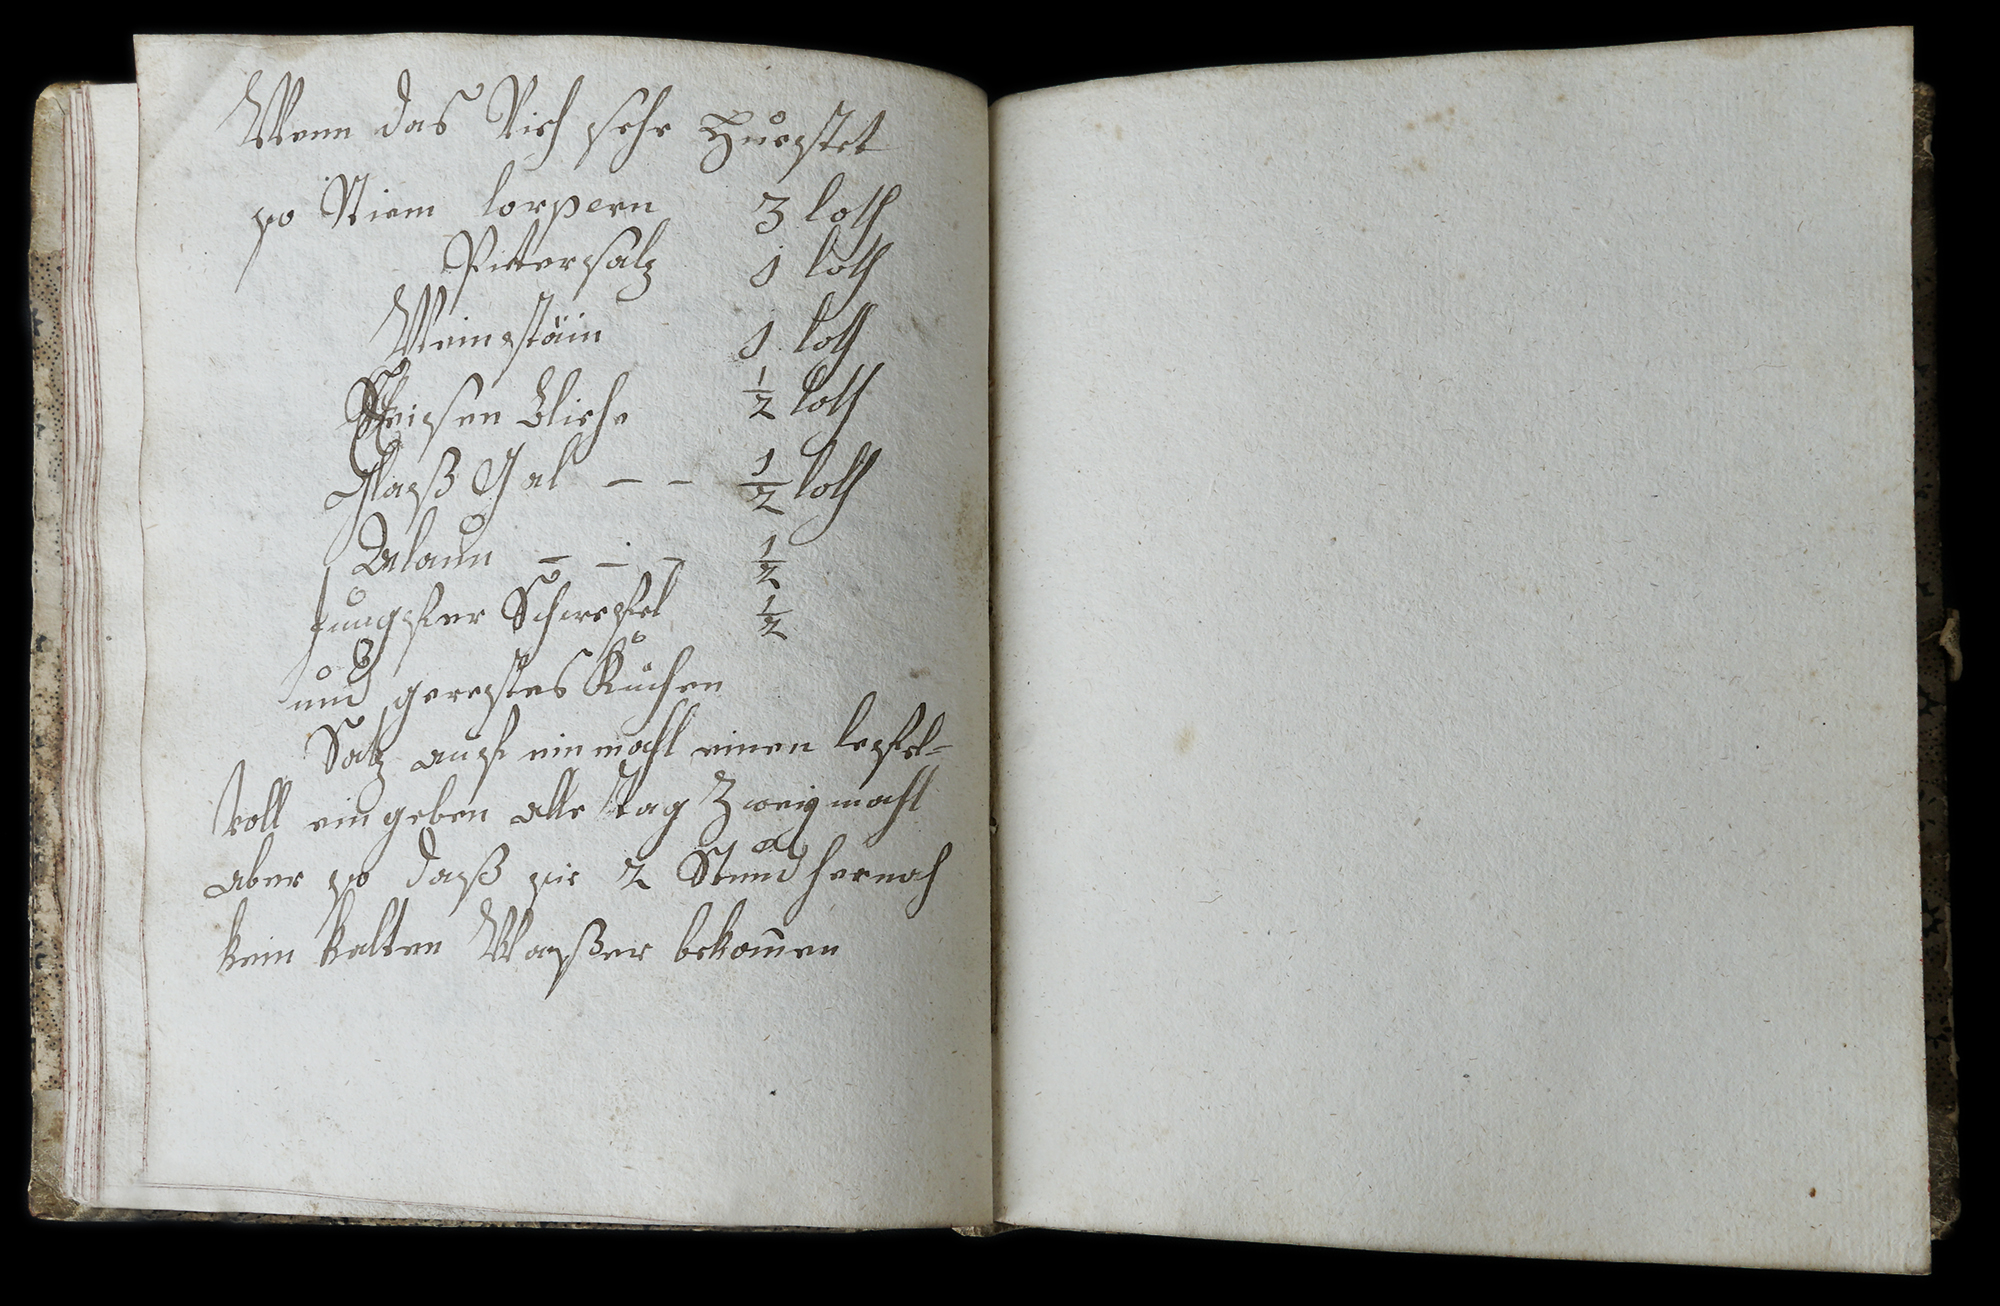 Wenn das Vieh sehr Huestet
so Niem lorpern 3 loth
Pittersalz 1 loth
Weinstäin 1 loth
Bliehe ½ loth
Glaß Gal — — ½ loth
Alaun — — — ½
Jungfer Schwefel ½
und geröstes Küchen
Salz auf ein mahl einen lefel=
voll ein geben alle tag Zweÿ mahl
aber so daß sie 2 Stund hernach
kein kalten Waßer bekom̅en